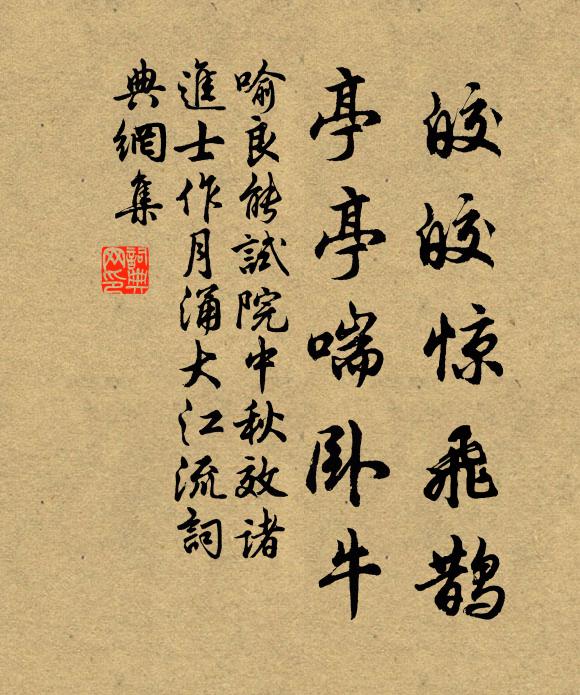 皎皎惊飛鵲
亭亭喘卧牛
喻良能試院中秋效諸
進士作月涌大江流詞
典網集
詞典網印